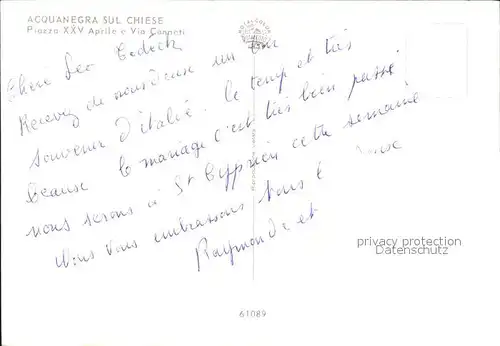 ACQUANEGRA SUL CHIESE
Piazza XXV Aprile e Via Canneti
Chere Leo
Recevez de nous deux un bon
souvenir d'italie. le temp et très
beause le mariage c'est très bien passé.
nous serons à St Cyprien cette semaine
Nous vous embrassons tous
Raymonde et
privacy protection
Datenschutz
61089